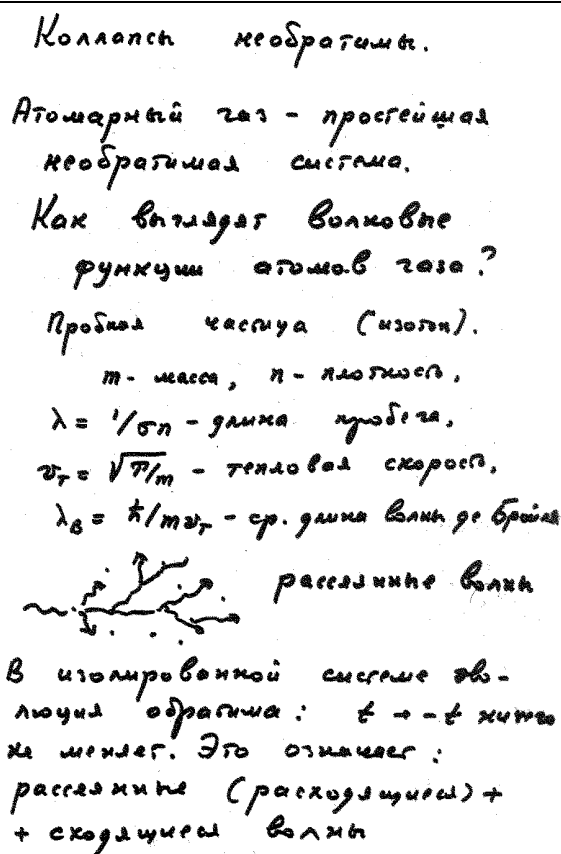 Коллапсы необратимы.
Атомарный газ - простейшая
необратимая система.
Как выглядят волновые
функции атомов газа?
Пробная частица (изотоп).
m - масса, n - плотность,
λ = 1/σn - длина пробега,
v_T = √T/m - тепловая скорость,
λ_B = ħ/mv_T - ср. длина волны де Бройля
рассеянные волны
В изолированной системе эво-
люция обратима: t → -t ничего
не меняет. Это означает:
рассеянные (расходящиеся) +
+ сходящиеся волны